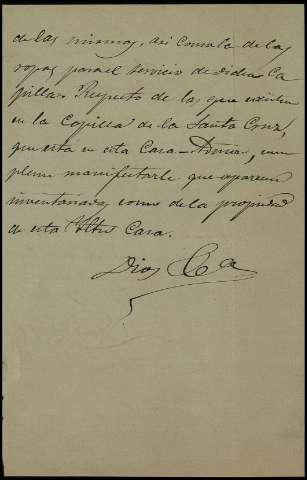 de las mismas, asi como la de las
ropas para el servicio de dicha Ca
pilla. Respecto de las que existen
en la Capilla de la Santa Cruz,
que está en esta Casa-Torre, cum
pleme manifestarle que aparecen
inventariados como de la propiedad
de esta Iltre Casa.
Dios &a